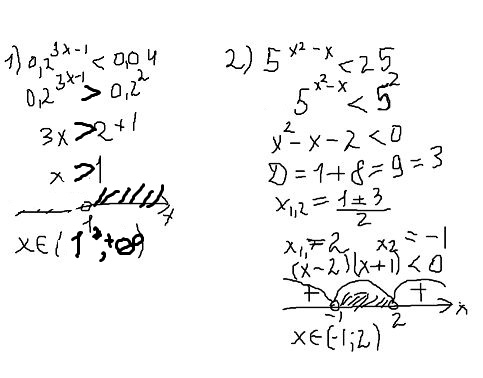 1) 0,2^{3x-1} < 0,04
0,2^{3x-1} > 0,2^2
3x > 2+1
x > 1
1 x
x∈(1;+∞)
2) 5^{x²-x} < 25
5^{x²-x} < 5²
x²-x-2 < 0
D = 1+8 = 9 = 3
x_{1,2} = \frac{1±3}{2}
x_1 = 2 x_2 = -1
(x-2)(x+1) < 0
+ +
-1 2 x
x∈(-1;2)